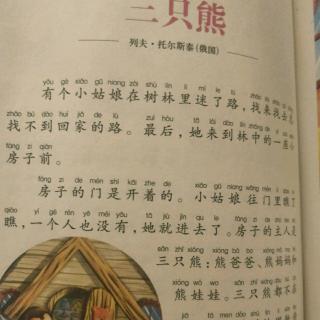 三只熊
列夫·托尔斯泰(俄国)
yǒu gè xiǎo gū niang zài shù lín lǐ mí le lù
有个小姑娘在树林里迷了路,找来找去
zhǎo bú dào huí jiā de lù zuì hòu tā lái dào lín zhōng de yí zuò xiǎo
找不到回家的路。最后,她来到林中的一座小
fáng zi qián
房子前。
fáng zi de mén shì kāi zhe de xiǎo gū niang wǎng mén lǐ qiáo le
房子的门是开着的。小姑娘往门里瞧了
qiáo yí gè rén yě méi yǒu tā jiù jìn qu le fáng zi de zhǔ rén shì
瞧,一个人也没有,她就进去了。房子的主人是
sān zhī xióng xióng bà ba xióng mā ma hé
三只熊:熊爸爸、熊妈妈和
xióng wá wa sān zhī xióng dōu bú zài
熊娃娃。三只熊都不在